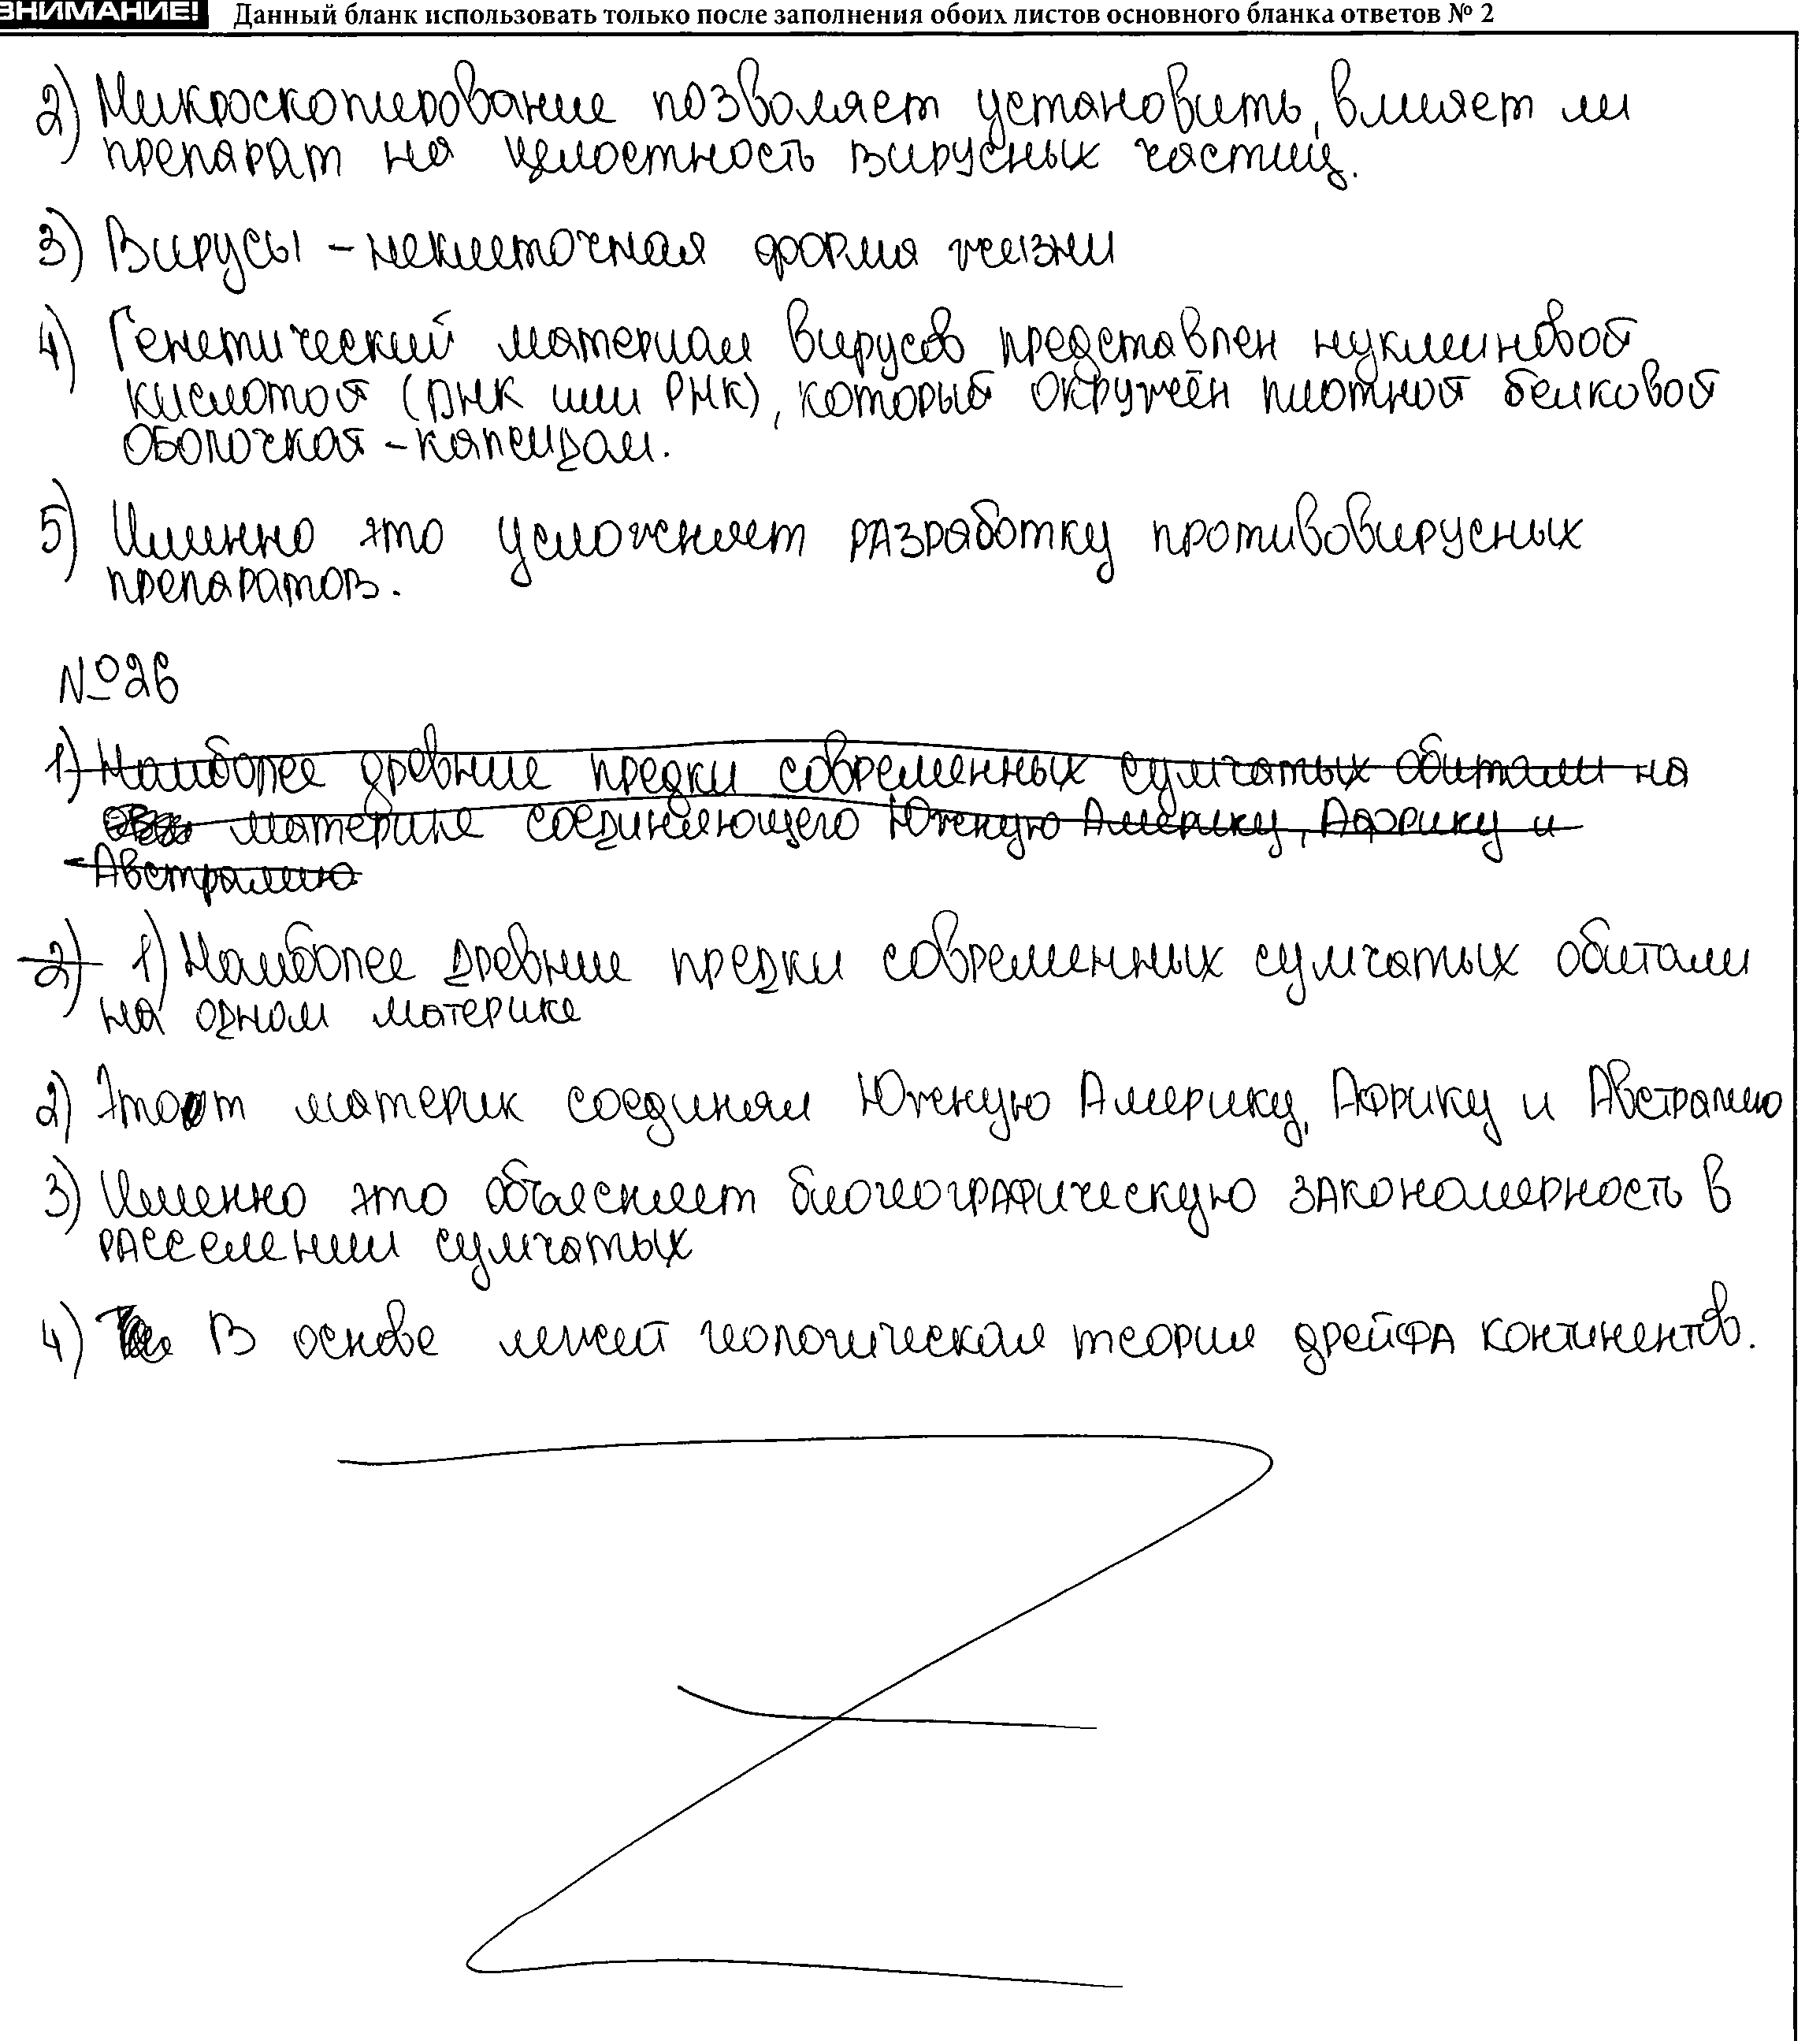 ВНИМАНИЕ! Данный бланк использовать только после заполнения обоих листов основного бланка ответов № 2
2) Микроскопирование позволяет установить, влияет ли
препарат на целостность вирусных частиц.
3) Вирусы – неклеточная форма жизни
4) Генетический материал вирусов представлен нуклеиновой
кислотой (ДНК или РНК), который окружён плотной белковой
оболочкой – капсидом.
5) Именно это усложняет разработку противовирусных
препаратов.
№26
1) Наиболее древние предки современных сумчатых обитали на
материке соединяющего Южную Америку, Африку и
Австралию
2) 1) Наиболее древние предки современных сумчатых обитали
на одном материке
2) Этот материк соединял Южную Америку, Африку и Австралию
3) Именно это объясняет биогеографическую закономерность в
расселении сумчатых
4) В основе лежит геологическая теория дрейфа континентов.